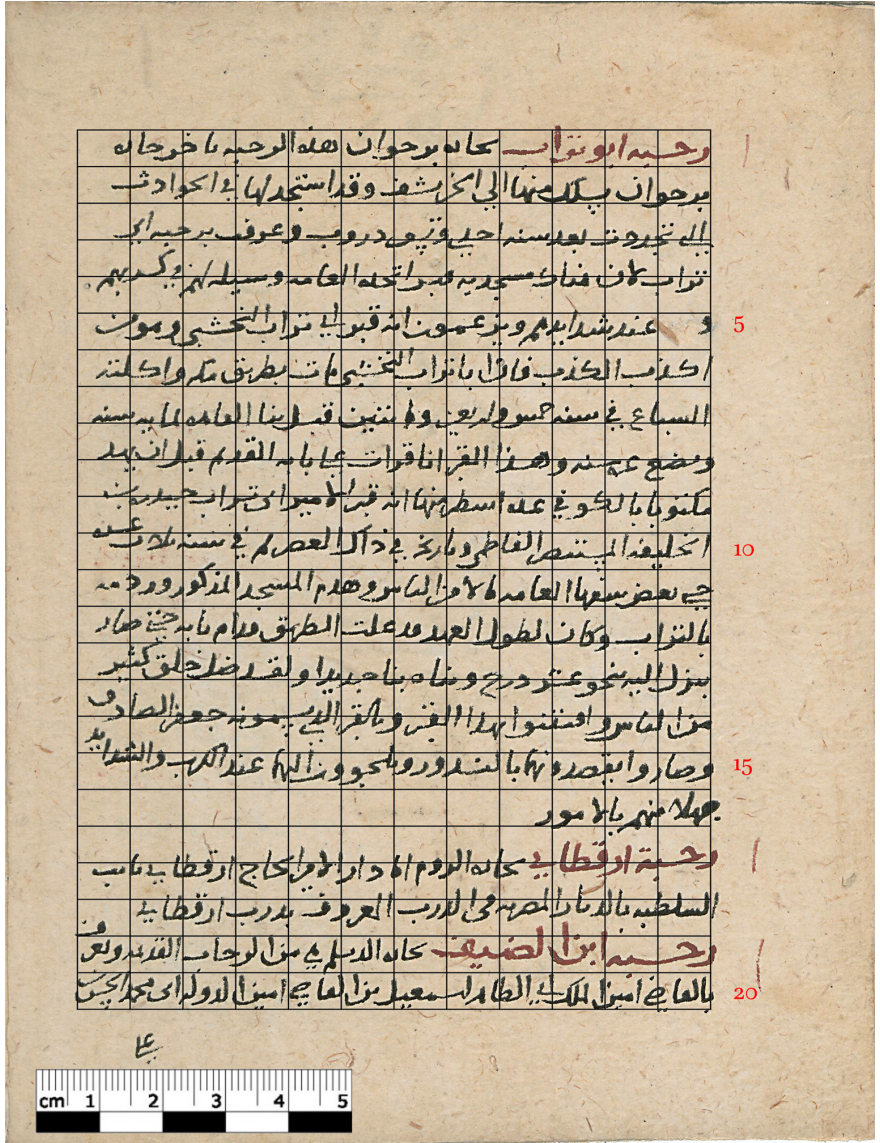 رحبه ابو تراب بحاره برجوان هذه الرحبه باخر حاره
برجوان يسلك منها الي الخرنشف وقد استجد لها في الحوادث
التي تجددت بعد سنه احدى وتسعين دروب وعرفت برحبه ابي
تراب لان هناك مسجد به قبر اتخذه العامه وسيله لهم في كسبهم
و عند شدايدهم ويزعمون انه قبر ابي تراب النخشبي وهو من
اكذب الكذب فان ابا تراب النخشبي مات بطريق مكه واكلته
السباع في سنه خمس واربعين ومايتين قبل بنا القاهره لمايه سنه
وبضع عشره سنه وهذا القبر انا قرات على بابه القديم قبل ان يهد
مكتوبا بالكوفي عده اسطر منها انه قبر الامير ابي تراب حيدره بن
الخليفه المستنصر الفاطمي وتاريخ في ذلك العصر ثم في سنه ثلاث عشره
بعض سفها العامه من الناس وهدم المسجد المذكور وردمه
بالتراب وكان لطول العهد قد علت الطريق قدام بابه حتى صار
ينزل اليه بنحو عشر درج وبناه بنا جديدا ولقد ضل خلق كثير
من الناس وافتتنوا بهذا القبر وبالقبر الذي يسمونه جعفر الصادق
وصاروا يقصدونها بالنذور ويلجوون اليها عند الكرب والشدايد
جهلا منهم بالامور
رحبة ارقطاي بحاره الروم امام دار الامير الحاج ارقطاي نايب
السلطنه بالديار المصريه في الدرب المعروف بدرب ارقطاي
رحبه ابن الضيف بحاره الديلم هي من الرحاب القديمه وتعرف
بالقاضي امين الملك ابي الطاهر اسمعيل بن القاضي امين الدوله ابي محمد الحسن
5
10
15
20
cm 1 2 3 4 5